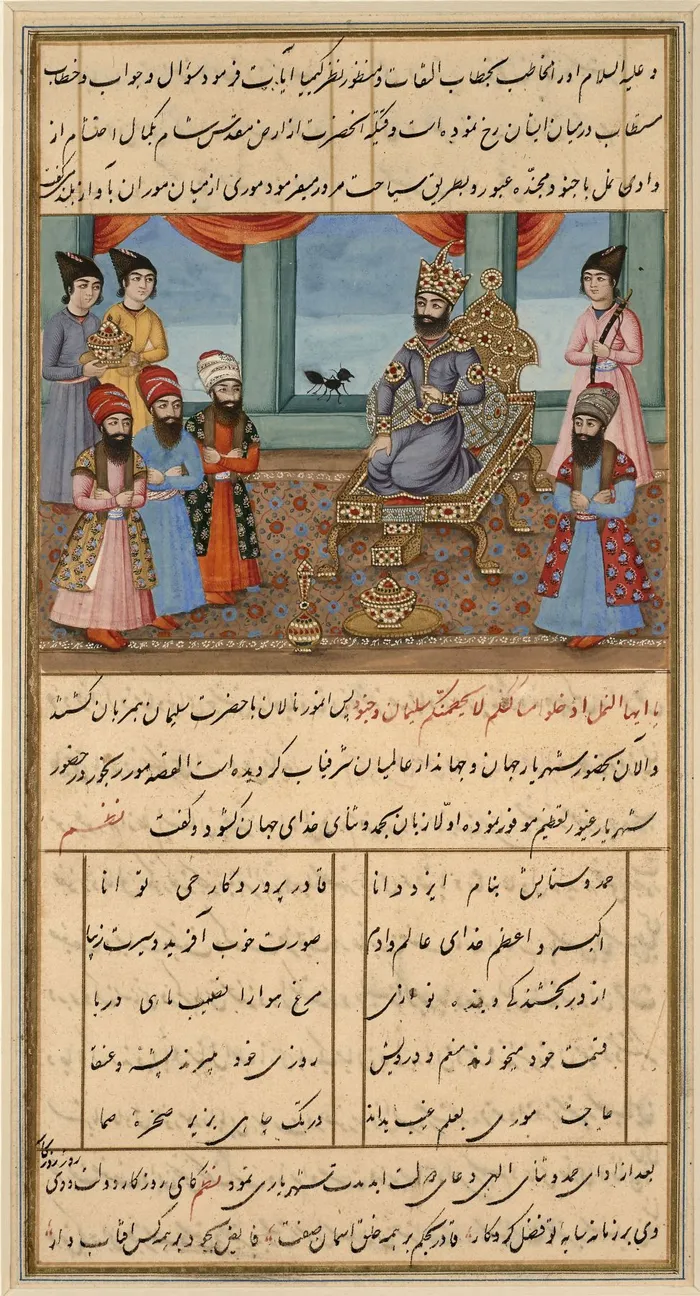 و علیه السلام اورا مخاطب بخطاب التفات و منظور نظر کیمیا آیات فرمود سؤال و جواب و خطاب
مستطاب در میان ایشان رخ نموده است وقتیکه آنحضرت از ارض مقدس شام بکمال احتشام از
وادی نمل با جنود مجنده عبور و بطریق سیاحت مرور میفرمود موری از میان موران بآواز بلند گفت
یا ایها النمل ادخلوا مساکنکم لا یحطمنکم سلیمان و جنوده پس آنمور نالان با حضرت سلیمان همزبان گشته
و الآن بحضور شهریار جهان و جهاندار عالمیان شرفیاب گردیده است القصه مور رنجور در حضور
شهریار غیور تعظیم موفور نموده اولا زبان بحمد و ثنای خدای جهان گشود و گفت نظم
حمد و ستایش بنام ایزد دانا قادر پروردگار حی توانا
اکبر و اعظم خدای عالم و آدم صورت خوب آفرید و سیرت زیبا
از در بخشندگی و بنده نوازی مرغ هوا را نصیب ماهی دریا
قسمت خود میخورند منعم و درویش روزی خود میبرند پشه و عنقا
حاجت موری بعلم غیب بداند در بک چاهی بزیر صخره صما
بعد از ادای حمد و ثنای الهی دعای دولت ابد مدت شهریاری نمود نظم کای روزگار دولت
وی بر زمانه سایه تو فضل کردگار قادر بحکم بر همه خلق آسمان صفت فایض بجود بر همه کس آفتاب وار